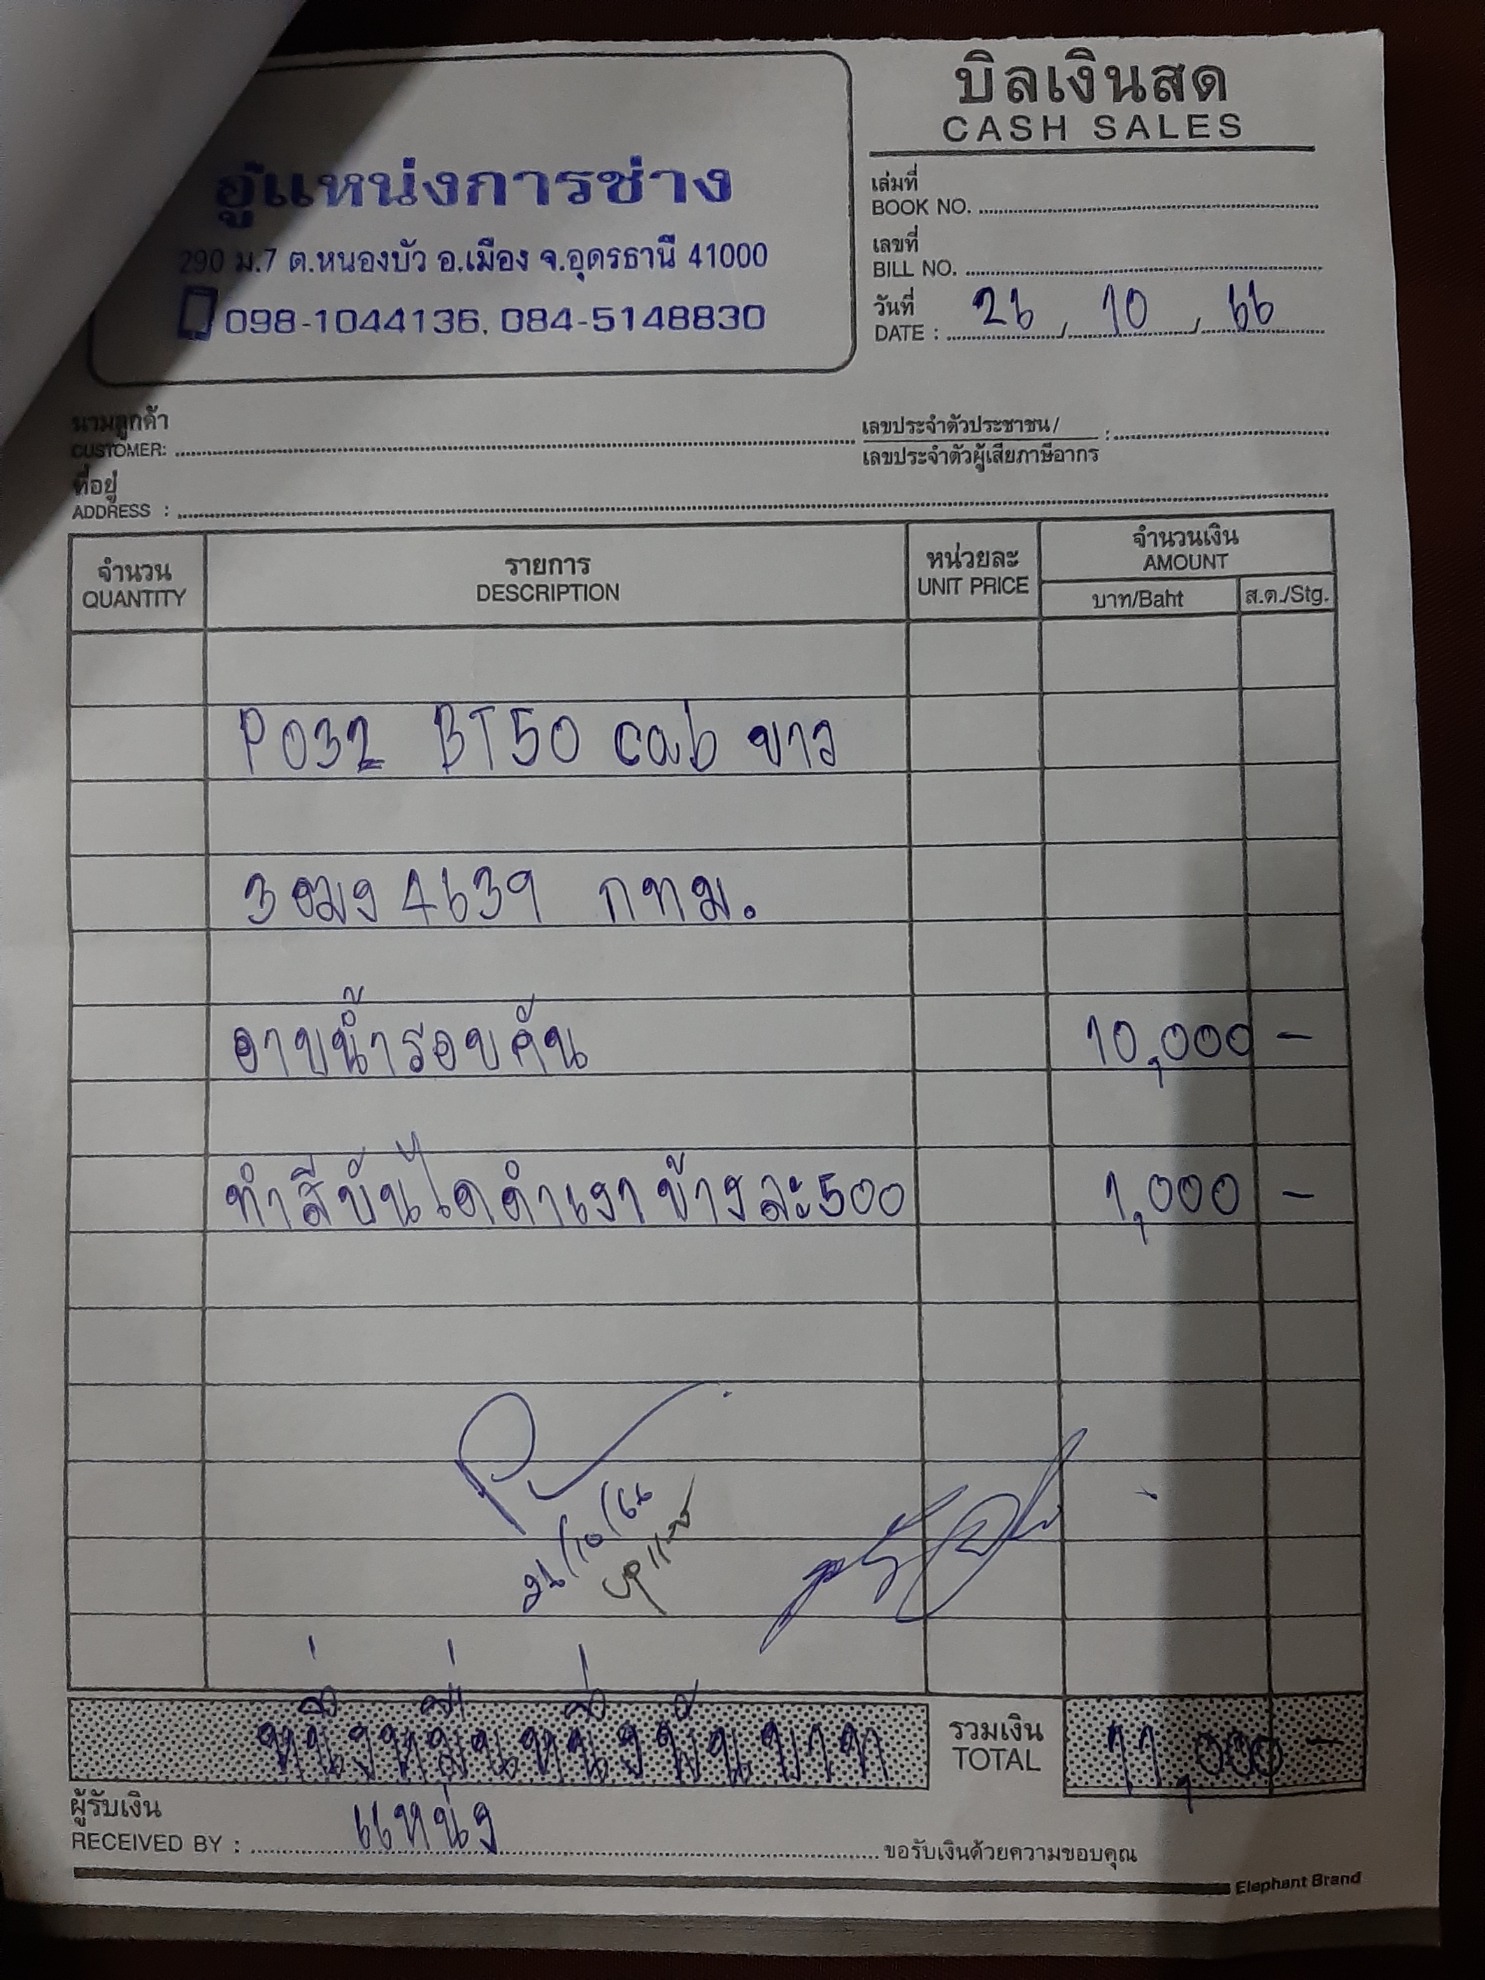 บิลเงินสด
CASH SALES
อู่แหน่งการช่าง
290 ม.7 ต.หนองบัว อ.เมือง จ.อุดรธานี 41000
098-1044136, 084-5148830
เล่มที่
BOOK NO.
เลขที่
BILL NO.
วันที่
DATE : 26 / 10 / 66
นามลูกค้า
CUSTOMER:
เลขประจำตัวประชาชน/ :
เลขประจำตัวผู้เสียภาษีอากร
ที่อยู่
ADDRESS :
จำนวน รายการ หน่วยละ จำนวนเงิน
QUANTITY DESCRIPTION UNIT PRICE AMOUNT
บาท/Baht ส.ต./Stg.
P032 BT50 cab ขาว
3ฒง 4639 กทม.
อาบน้ำรอบคัน 10,000 -
ทำสีบันไดดำเงา ข้างละ 500 1,000 -
26/10/66
หนึ่งหมื่นหนึ่งพันบาท รวมเงิน 11,000 -
TOTAL
ผู้รับเงิน
RECEIVED BY : แหน่ง ขอรับเงินด้วยความขอบคุณ
Elephant Brand